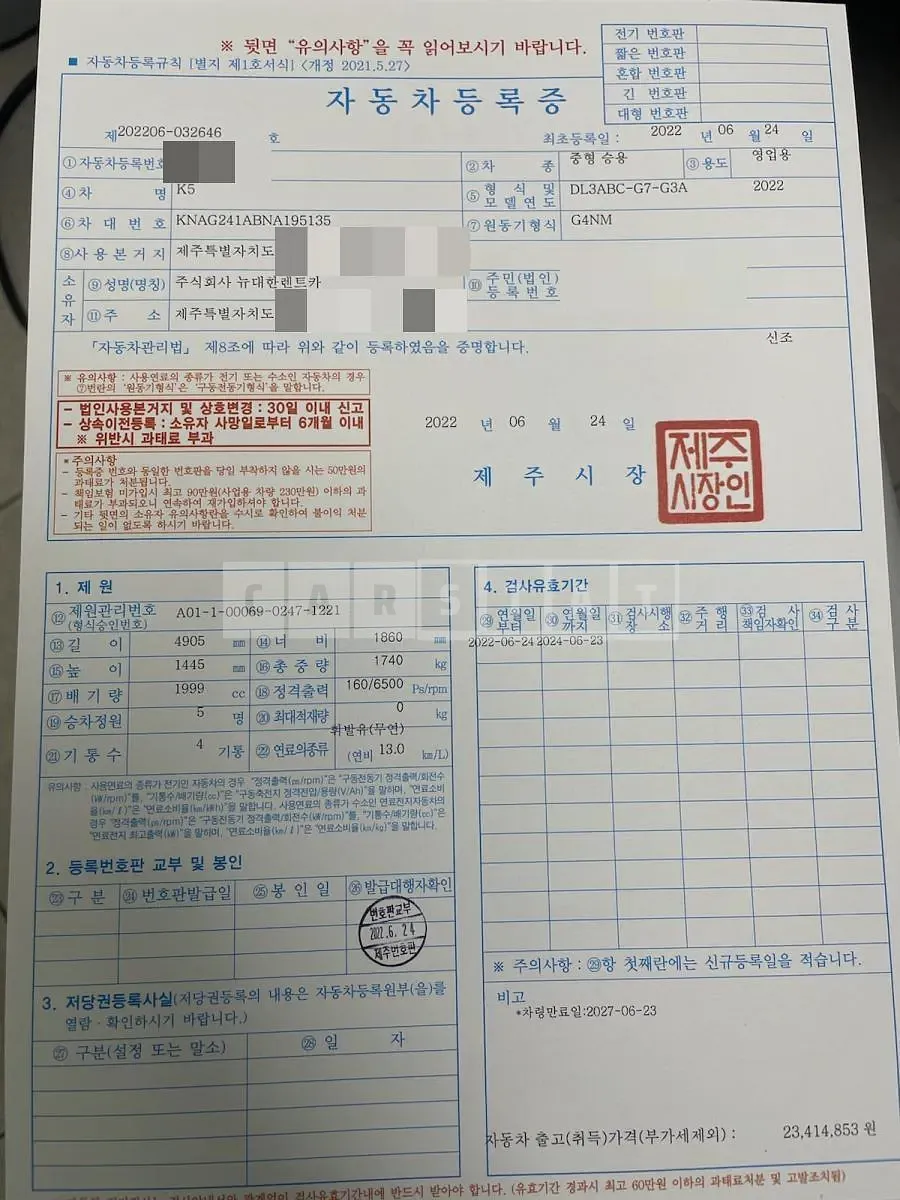 ※ 뒷면 "유의사항"을 꼭 읽어보시기 바랍니다.
■ 자동차등록규칙 [별지 제1호서식] <개정 2021.5.27>
전기 번호판
짧은 번호판
혼합 번호판
긴 번호판
대형 번호판
자동차등록증
제202206-032646 호
최초등록일 : 2022 년 06 월 24 일
①자동차등록번호
②차 종 중형 승용 ③용도 영업용
④차 명 K5
⑤형 식 및 모델연도 DL3ABC-G7-G3A 2022
⑥차 대 번 호 KNAG241ABNA195135
⑦원동기형식 G4NM
⑧사 용 본 거 지 제주특별자치도
소유자 ⑨성명(명칭) 주식회사 뉴대한렌트카
⑩주민(법인)등록번호
⑪주 소 제주특별자치도
「자동차관리법」 제8조에 따라 위와 같이 등록하였음을 증명합니다.
신조
※ 유의사항 : 사용연료의 종류가 전기 또는 수소인 자동차의 경우
⑦번란의 '원동기형식'은 '구동전동기형식'을 말합니다.
- 법인사용본거지 및 상호변경 : 30일 이내 신고
- 상속이전등록 : 소유자 사망일로부터 6개월 이내
※ 위반시 과태료 부과
2022 년 06 월 24 일
제 주 시 장
제주
시장인
*주의사항
- 등록증 번호와 동일한 번호판을 당일 부착하지 않을 시는 50만원의
과태료가 처분됩니다.
- 책임보험 미가입시 최고 90만원(사업용 차량 230만원) 이하의 과
태료가 부과되오니 연속하여 재가입하셔야 합니다.
- 기타 뒷면의 소유자 유의사항란을 수시로 확인하여 불이익 처분
되는 일이 없도록 하시기 바랍니다.
1. 제 원
⑫제원관리번호 (형식승인번호) A01-1-00069-0247-1221
⑬길 이 4905 mm ⑭너 비 1860 mm
⑮높 이 1445 mm ⑯총 중 량 1740 kg
⑰배 기 량 1999 cc ⑱정격출력 160/6500 Ps/rpm
⑲승차정원 5 명 ⑳최대적재량 0 kg
㉑기 통 수 4 기통 ㉒연료의종류 휘발유(무연) (연비 13.0 km/L)
유의사항 : 사용연료의 종류가 전기인 자동차의 경우 "정격출력(㎰/rpm)"은 "구동전동기 정격출력/회전수
(㎾/rpm)"를, "기통수/배기량(cc)"은 "구동축전지 정격전압/용량(V/Ah)"을 말하며, "연료소비
율(㎞/ℓ)"은 "연료소비율(㎞/㎾h)"을 말합니다. 사용연료의 종류가 수소인 연료전지자동차의
경우 "정격출력(㎰/rpm)"은 "구동전동기 정격출력/회전수(㎾)"를, "기통수/배기량(cc)"은
"연료전지 최고출력(㎾)"을 말하며, "연료소비율(㎞/ℓ)"은 "연료소비율(㎞/kg)"을 말합니다.
2. 등록번호판 교부 및 봉인
㉓구 분 ㉔번호판발급일 ㉕봉 인 일 ㉖발급대행자확인
번호판교부
2022.6.24
제주번호판
3. 저당권등록사실(저당권등록의 내용은 자동차등록원부(을)를
열람 · 확인하시기 바랍니다.)
㉗ 구분(설정 또는 말소) ㉘ 일 자
4. 검사유효기간
㉙연월일부터 ㉚연월일까지 ㉛검사시행장소 ㉜주행거리 ㉝검사책임자확인 ㉞검사구분
2022-06-24 2024-06-23
※ 주의사항 : ㉙항 첫째란에는 신규등록일을 적습니다.
비고
*차령만료일:2027-06-23
자동차 출고(취득)가격(부가세제외) : 23,414,853 원
검사유효기간내에 반드시 받아야 합니다. (유효기간 경과시 최고 60만원 이하의 과태료처분 및 고발조치됨)